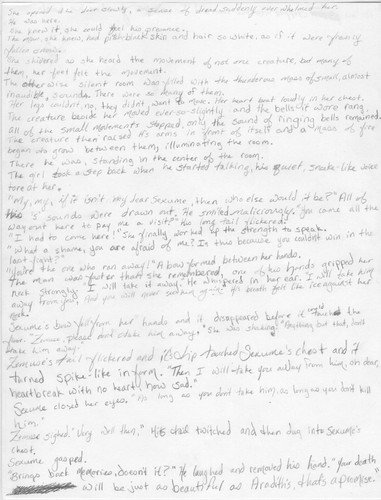 She opened the door slowly, a sense of dread suddenly overwhelmed her.
He was here.
She knew it, she could feel his presence.
The man, she knew, had pitch black skin and hair so white, as if it were
She shidered as she heard the movement of not one creature, but many of
them, her feet felt the movement.
The otherwise silent room was filled with the thunderous mass of small, almost
inaudible, sounds. There were so many of them.
Her legs wouldn't, no, they didn't, want to move. Her heart beat loudly in her chest.
The creature beside her moved ever-so-slightly and the bells it wore rang.
All of the small movements stopped, only the sound of ringing bells remained.
The creature then raised it's arms in front of itself and a mass of fire
began to grow between them, illuminating the room.
There he was, standing in the center of the room.
The girl took a step back when he started talking, his quiet, snake-like voice
tore at her.
"My, my, if it isn't my dear Sexume, then who else would it be?" All of
his 's' sounds were drawn out. He smiled maliciously. "You came all the
way out here to pay me a visit?" His long tail flickered.
"I had to come here!" She finally worked up the strength to speak.
"What a shame, you are afraid of me? Is this because you couldn't win in the
last fight?"
"You're the one who ran away!" A bow formed between her hands.
The man was faster than she remembered, one of his hands gripped her
neck strongly. "I will take it away." He whispered in her ear. "I will take him
away from you, And you will never see him again." His breath felt like ice against her
neck.
Sexume's bow fell from her hands and it disappeared before it touched the
floor. "Zemuse, please don't take him away." She was shaking. "Anything but that, don't
take him away."
Zemuse's tail flickered and its tip touched Sexume's chest and it
turned spike-like in form. Then I will take you away from him, oh dear,
heartbreak with no heart, how sad."
Sexume closed her eyes. "As long as you don't take him, as long as you don't kill
him."
Zemuse sighed. "Very well then." His tail twitched and then dug into Sexume's
chest.
Sexume gasped.
"Brings back memories, doesn't it?" He laughed and removed his hand. "Your death
will be just as beautiful as Araddis, that's a promise."